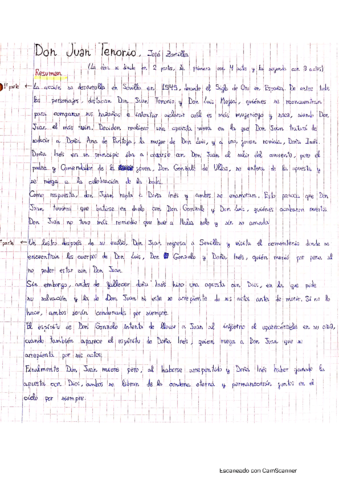 Don Juan Tenorio, José Zorrilla
(La obra se divide en 2 partes, la primera con 4 actos y la segunda con 3 actos)
Resumen
1ª parte ← La acción se desarrolla en Sevilla en 1545, durante el Siglo de Oro en España. De entre todos
los personajes, destacan Don Juan Tenorio y Don Luis Mejía, quienes se reencuentran
para comparar sus hazañas e intentar aclarar cuál es más mujeriego y , siendo Don
Juan el más . Deciden realizar una apuesta nueva en la que Don Juan tratará de
seducir a Doña Ana de Pantoja, la mujer de Don Luis, y a una joven novicia, Doña Inés.
Doña Inés en un principio iba a casarse con Don Juan al salir del convento, pero el
padre y Comendador de la joven, Don Gonzalo de Ulloa, se entera de la apuesta y
se niega a la celebración de la boda.
Como respuesta, Don Juan rapta a Doña Inés y ambos se enamoran. Esto provoca que Don
Juan termine que batirse en duelo con Don Gonzalo y Don Luis, quienes acaban muertos
Don Juan no tuvo más remedio que huir a Italia solo y sin su amada.
2ª parte ← Un lustro después de su exilio, Don Juan regresa a Sevilla y visita el cementerio donde se
encuentran los cuerpos de Don Luis, Don Gonzalo y Doña Inés, quien murió por pena al
no poder estar con Don Juan.
Sin embargo, antes de fallecer doña Inés hizo una apuesta con Dios, en la que pide
su salvación y la de Don Juan si este se arrepiente de sus actos antes de morir. Si no lo
hace, ambos serán condenados por siempre.
El espíritu de Don Gonzalo intenta de llevar a Juan al infierno al aparecérsele en su casa,
cuando también aparece el espíritu de Doña Inés, quien ruega a Don Juan que se
arrepienta por sus actos.
Finalmente Don Juan muere pero, al haberse arrepentido y Doña Inés haber ganado la
apuesta con Dios, ambos se libran de la condena eterna y permanecerán juntos en el
cielo por siempre.
Escaneado con CamScanner